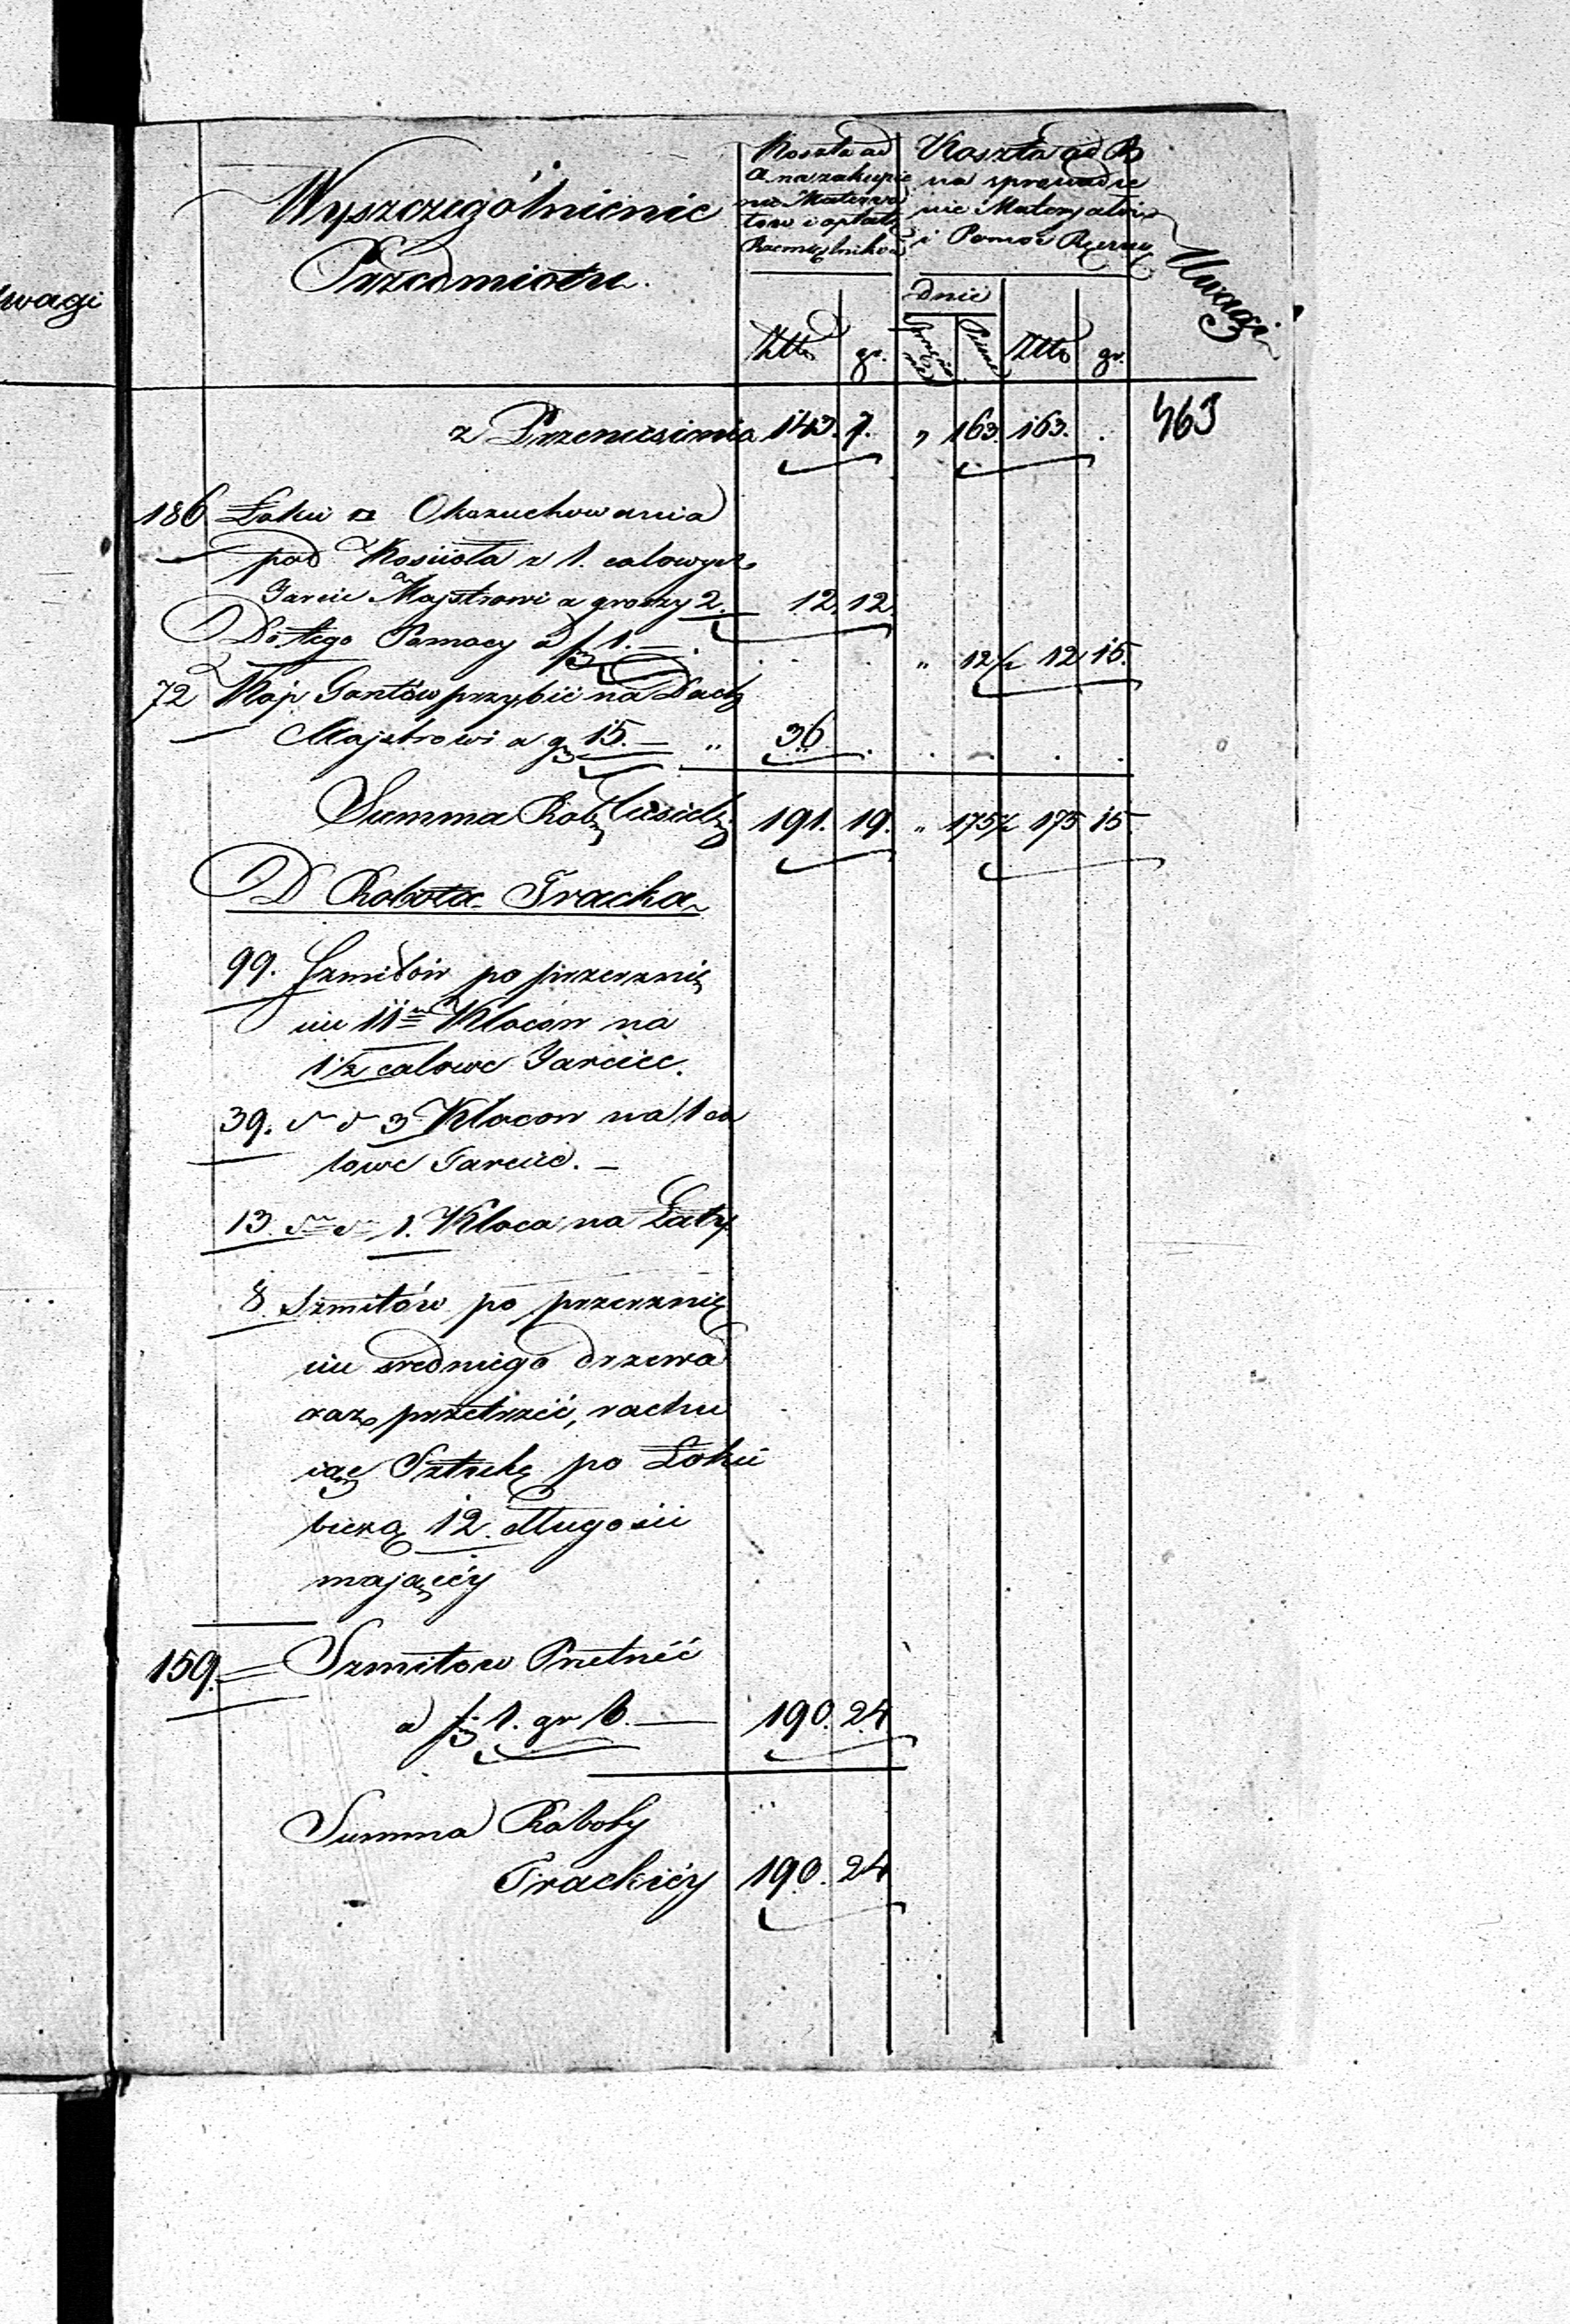 wagi
Wyszczególnienie
Przedmiotu.
Koszta ad
a na zakupie
nie Materya
łów i opłatę
Rzemięślników
Koszta ad B
na sprowadze
nie Materyałów
i Pomoc Ręczną
Uwagi
dnie
Ciągłe
Piesze
Złłp gr. Złłp gr.
z Przeniesienia 143. 7. „ 163. 163. . 463
186 Łokci Okozuchowania
pod Kościoła z 1. calowych
Tarcic Majstrowi a groszy 2. — 12. 12.
Do tego Pomocy a f 1. — . . . „ 12½ 12 15.
72 Kop Gontów przybić na Dach
Majstrowi a g 15. — „ 36 . . . . .
Summa Rob Ciesiels 191. 19. „ 175½ 175 15.
D Robota Tracka
99. Szmitów po przerznię
ciu 11 Kloców na
1½ calowe Tarcice.
39. d d 3 Klocow na 1 ca
lowe Tarcice. —
13. d d 1. Kloca na Łaty
8 Szmitów po przerznię
ciu sredniego drzewa
raz przetrzeć, rachu
iąc Sztukę po Łokci
bieżą 12. długości
mającéy
159. = Szmitow Przetrzéć
a f 1. gr 6. — 190. 24
Summa Roboty
Trackiéy 190. 24